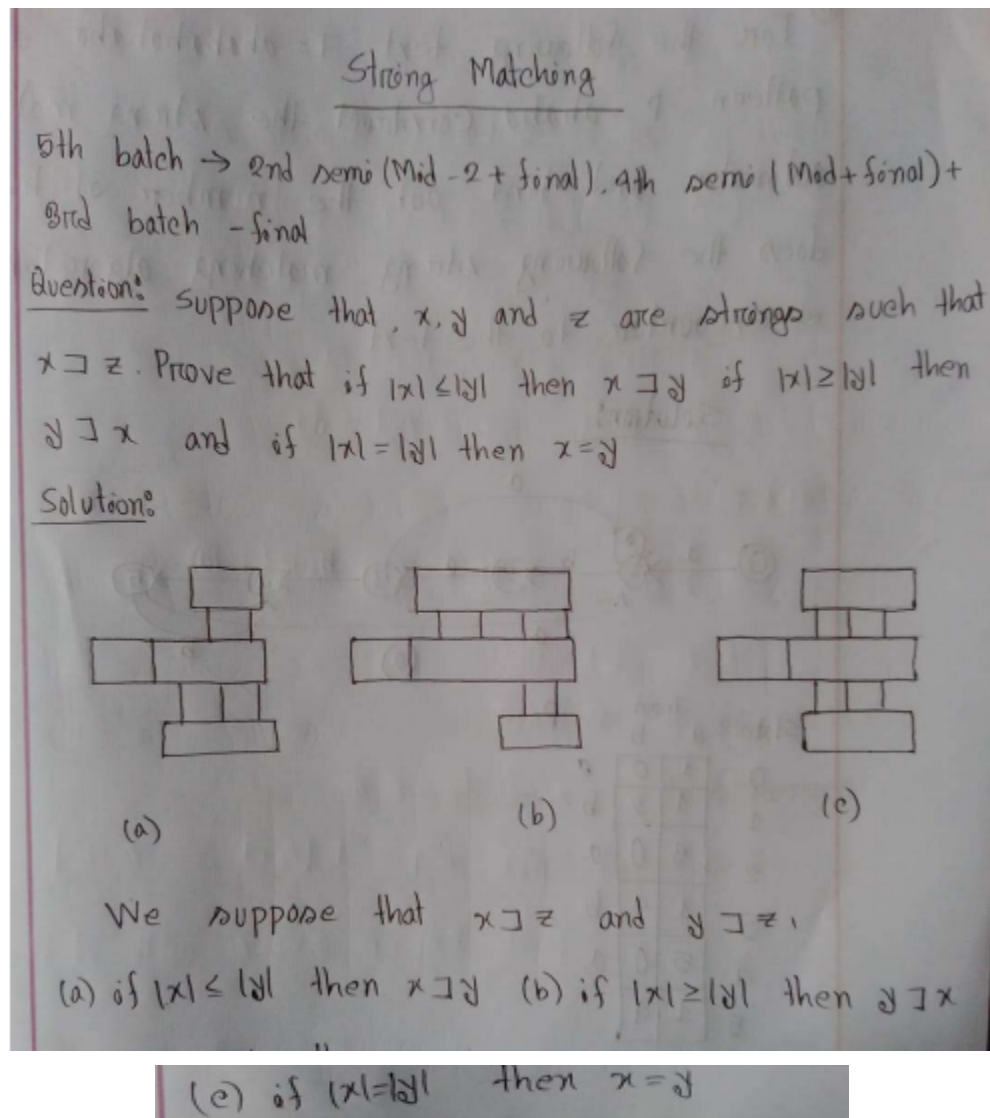 String Matching
5th batch → 2nd semi (Mid - 2 + final). 4th semi (Mid + final) +
3rd batch - final
Question: Suppose that, x, y and z are strings such that
x ⊐ z. Prove that if |x| ≤ |y| then x ⊐ y if |x| ≥ |y| then
y ⊐ x and if |x| = |y| then x = y
Solution:
(a) (b) (c)
We suppose that x ⊐ z and y ⊐ z,
(a) if |x| ≤ |y| then x ⊐ y (b) if |x| ≥ |y| then y ⊐ x
(c) if |x|=|y| then x = y